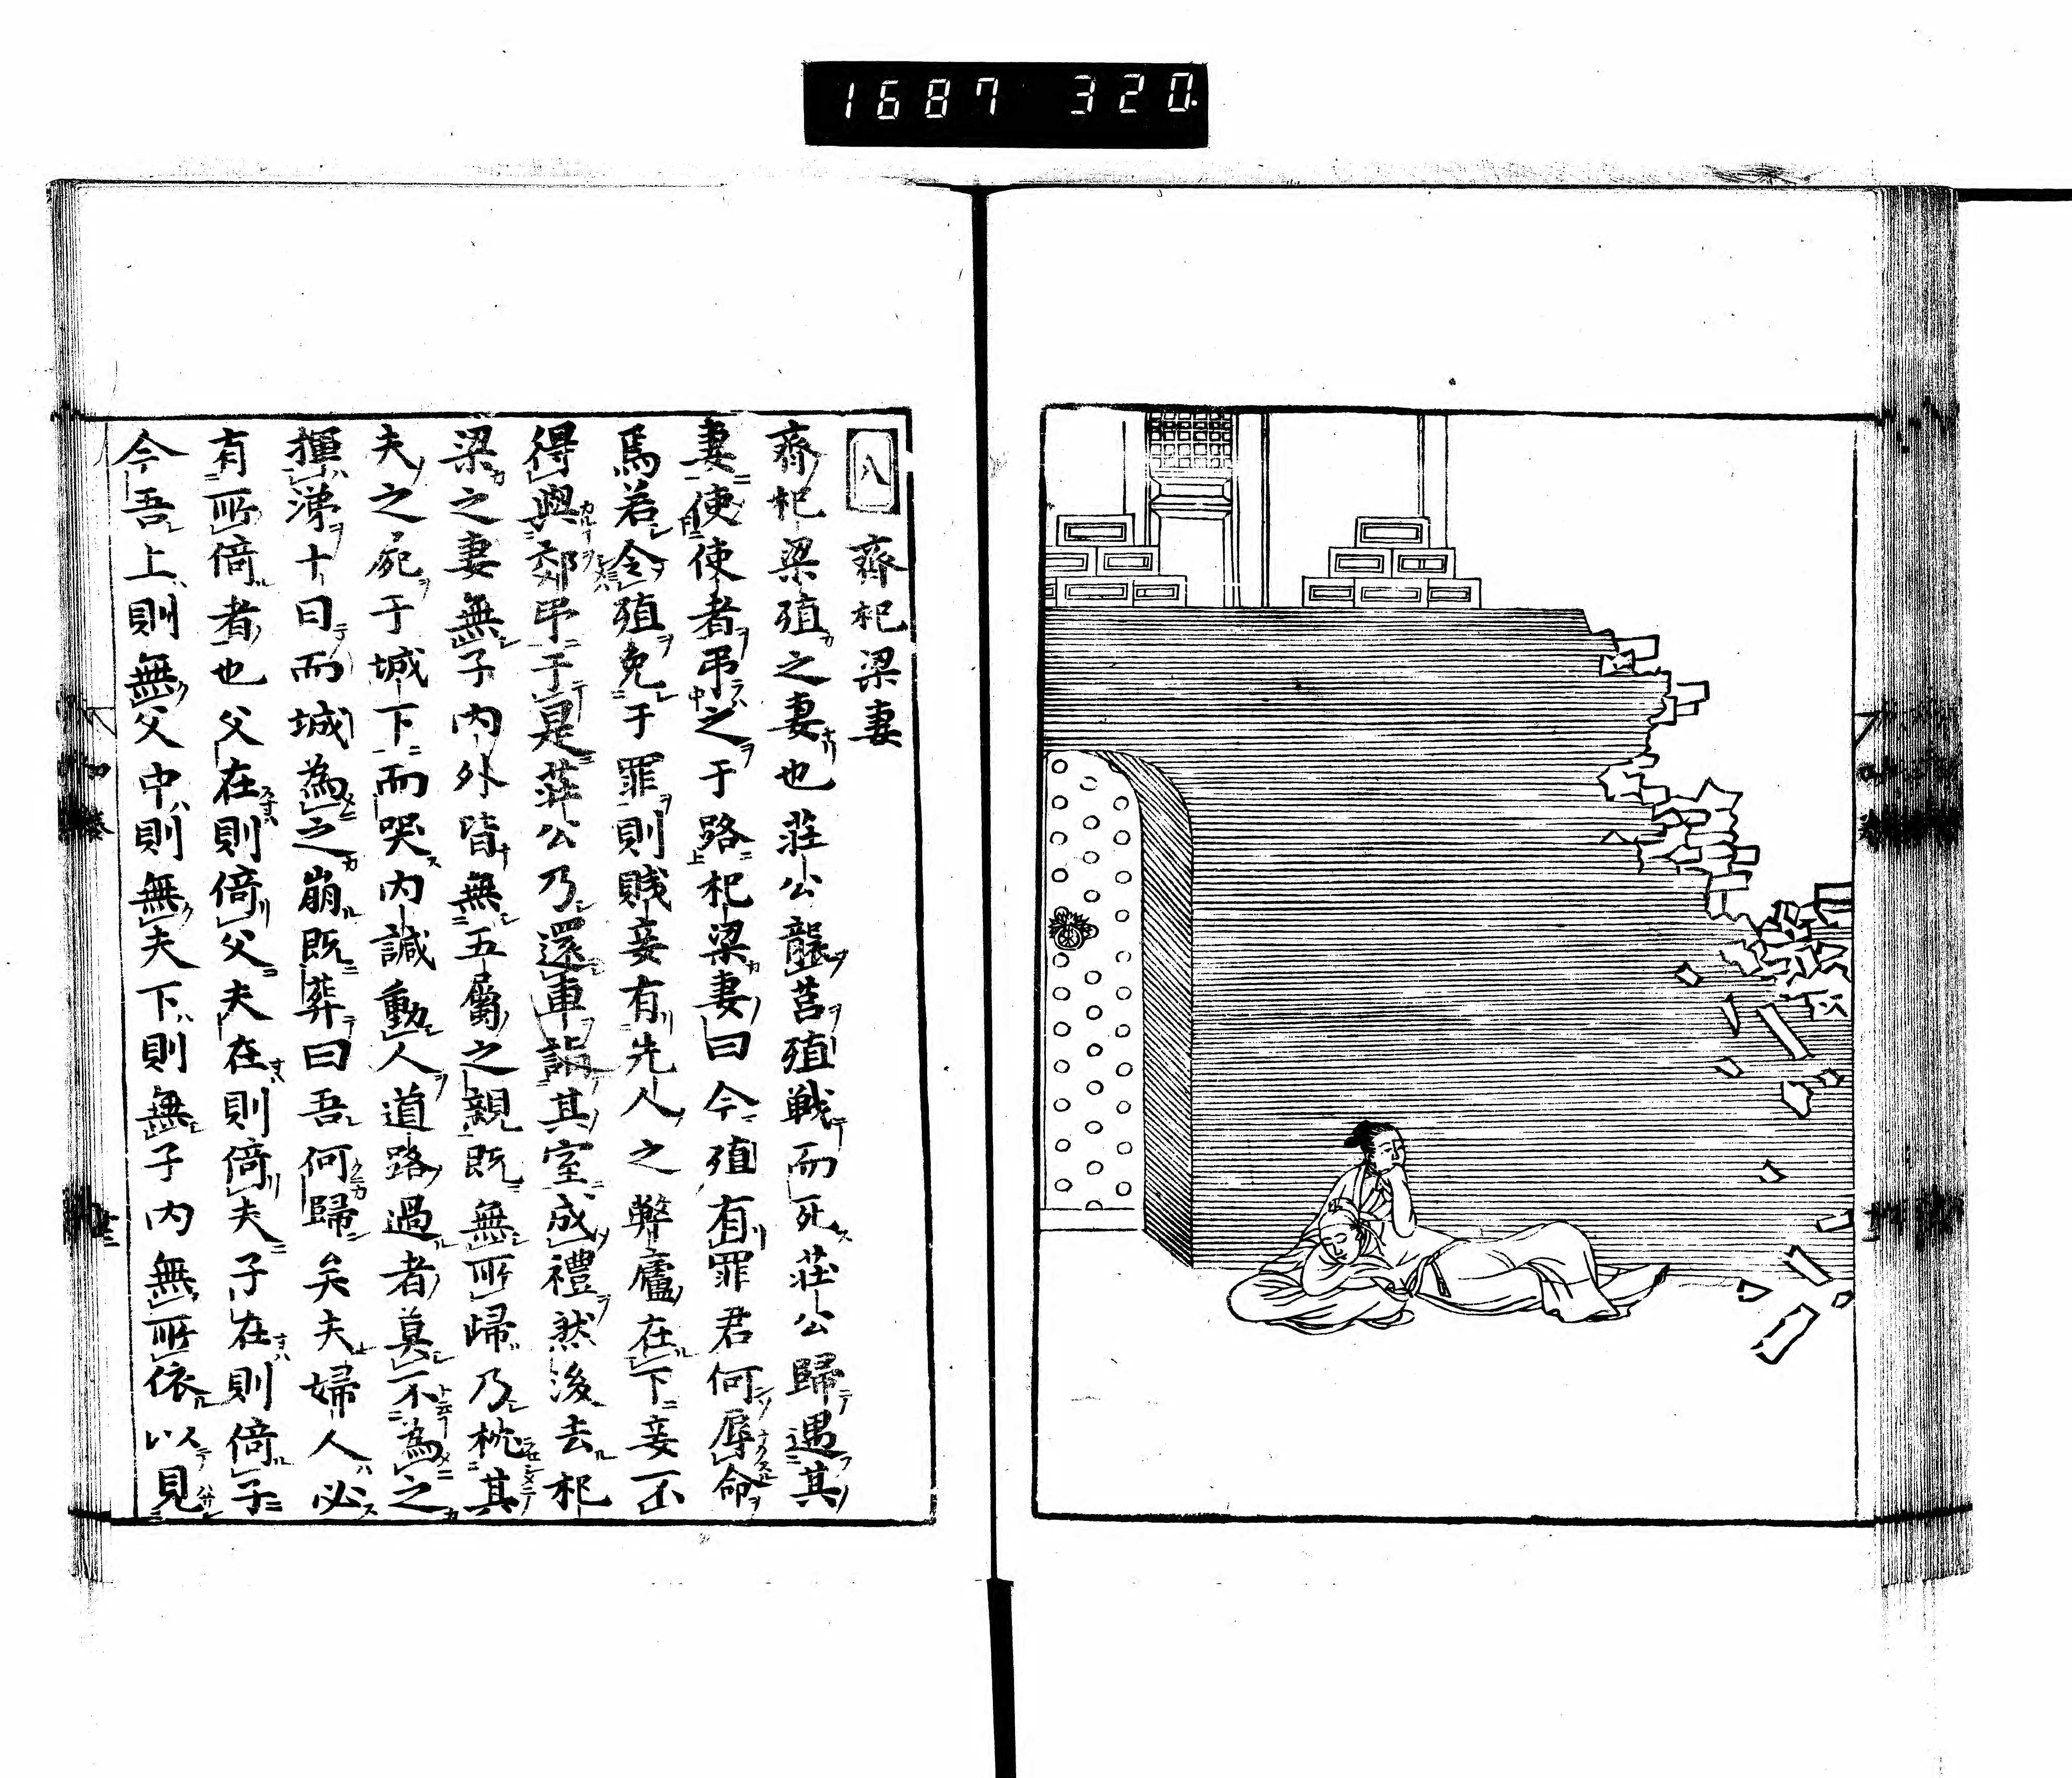 1687 320.
八 齊杞梁妻
齊杞梁殖之妻也莊公襲莒殖戰而死莊公歸遇其
妻使使者弔之于路杞梁妻曰今殖有罪君何辱命
焉若令殖免于罪則賤妾有先人之弊廬在下妾不
得與郊弔于是莊公乃還車詣其室成禮然後去杞
梁之妻無子內外皆無五屬之親既無所歸乃枕其
夫之屍于城下而哭內諴動人道路過者莫不為之
揮涕十日而城為之崩既葬曰吾何歸矣夫婦人必
有所倚者也父在則倚父夫在則倚夫子在則倚子
今吾上則無父中則無夫下則無子內無所依以見